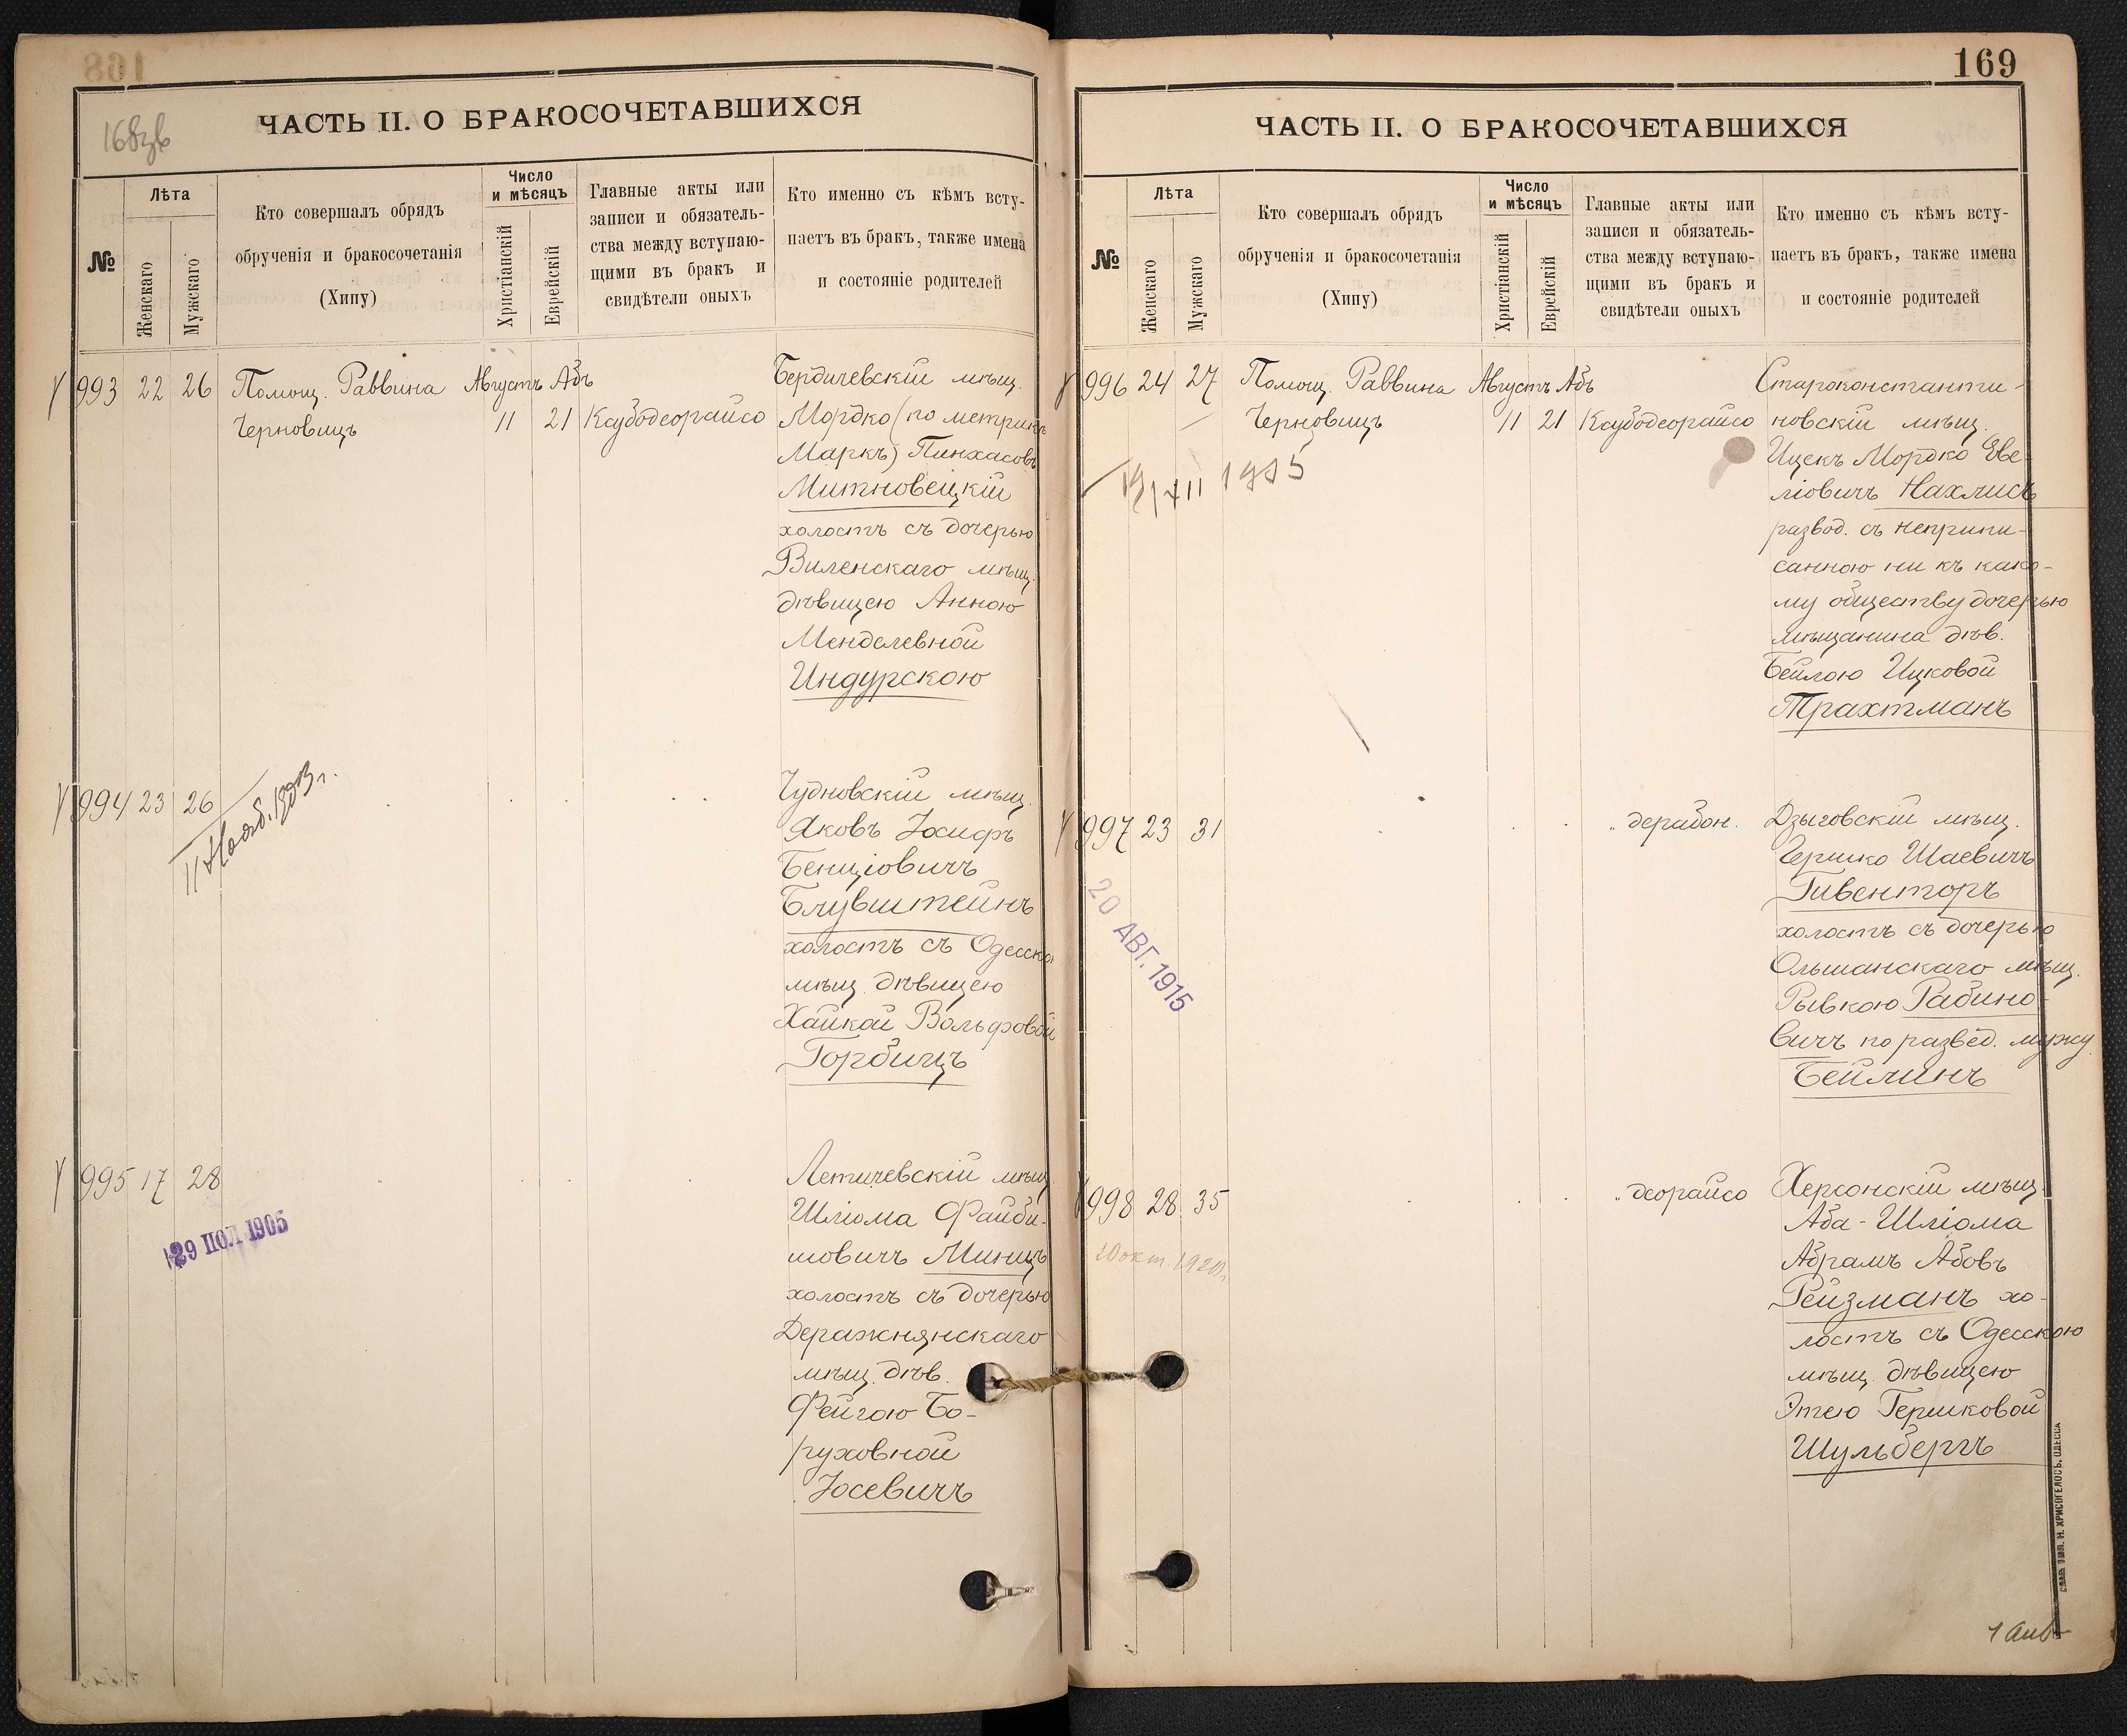 168зв
ЧАСТЬ II. О БРАКОСОЧЕТАВШИХСЯ
№
Лѣта
Женскаго
Мужскаго
Кто совершалъ обрядъ
обрученія и бракосочетанія
(Хипу)
Число
и мѣсяцъ
Христіанскій
Еврейскій
Главные акты или
записи и обязатель-
ства между вступаю-
щими въ бракъ и
свидѣтели оныхъ
Кто именно съ кѣмъ всту-
паетъ въ бракъ, также имена
и состояніе родителей
993 22 26 Помощ. Раввина Августъ Абъ
Черновицъ 11 21 Ксубодеорайсо
Бердичевскій мѣщ.
Мордко (по метрикѣ
Маркъ) Пинхасовъ
Митновецкій
холостъ съ дочерью
Виленскаго мѣщ.
дѣвицею Анною
Менделевной
Индурскою
994 23 26
11 Нояб. 1903 г.
Чудновскій мѣщ.
Яковъ Іосифъ
Бенціовичъ
Блувштейнъ
холостъ съ Одесской
мѣщ. дѣвицею
Хайкой Вольфовой
Горбицъ
995 17 28
29 ІЮЛ 1905
Летичевскій мѣщ
Шліома Файби-
шовичъ Миницъ
холостъ съ дочерью
Деражнянскаго
мѣщ. дѣв.
Фейгою Бо-
руховной
Іосевичъ
169
ЧАСТЬ II. О БРАКОСОЧЕТАВШИХСЯ
№
Лѣта
Женскаго
Мужскаго
Кто совершалъ обрядъ
обрученія и бракосочетанія
(Хипу)
Число
и мѣсяцъ
Христіанскій
Еврейскій
Главные акты или
записи и обязатель-
ства между вступаю-
щими въ бракъ и
свидѣтели оныхъ
Кто именно съ кѣмъ всту-
паетъ въ бракъ, также имена
и состояніе родителей
996 24 27 Помощ. Раввина Августъ Абъ
Черновицъ 11 21 Ксубодеорайсо
Староконстанти-
новскій мѣщ.
Ицекъ Мордко Еве-
ліовичъ Нахлисъ
развод. съ неприпи-
санною ни къ како-
му обществу дочерью
мѣщанина дѣв.
Бейлою Ицковой
Трахтманъ
997 23 31
20 АВГ. 1915
„ дерабон.
Дзыговскій мѣщ.
Гершко Шаевичъ
Гивенторъ
холостъ съ дочерью
Ольшанскаго мѣщ.
Рывкою Рабино-
вичъ по развед. мужу
Бейлинъ
998 28 35
20 окт. 1920 г.
„ деорайсо
Херсонскій мѣщ.
Аба-Шліома
Абрамъ Абовъ
Рейзманъ хо-
лостъ съ Одесскою
мѣщ. дѣвицею
Этею Гершковой
Шульбергъ